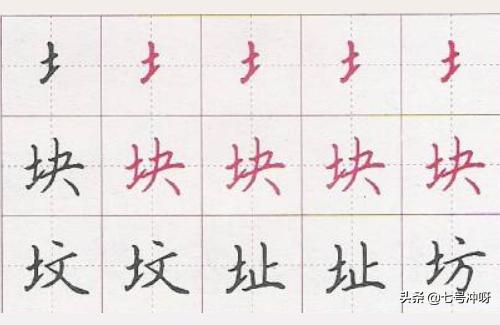 土 土 土 土 土
块 块 块 块 块
坟 坟 址 址 坊
头条 @七号冲呀